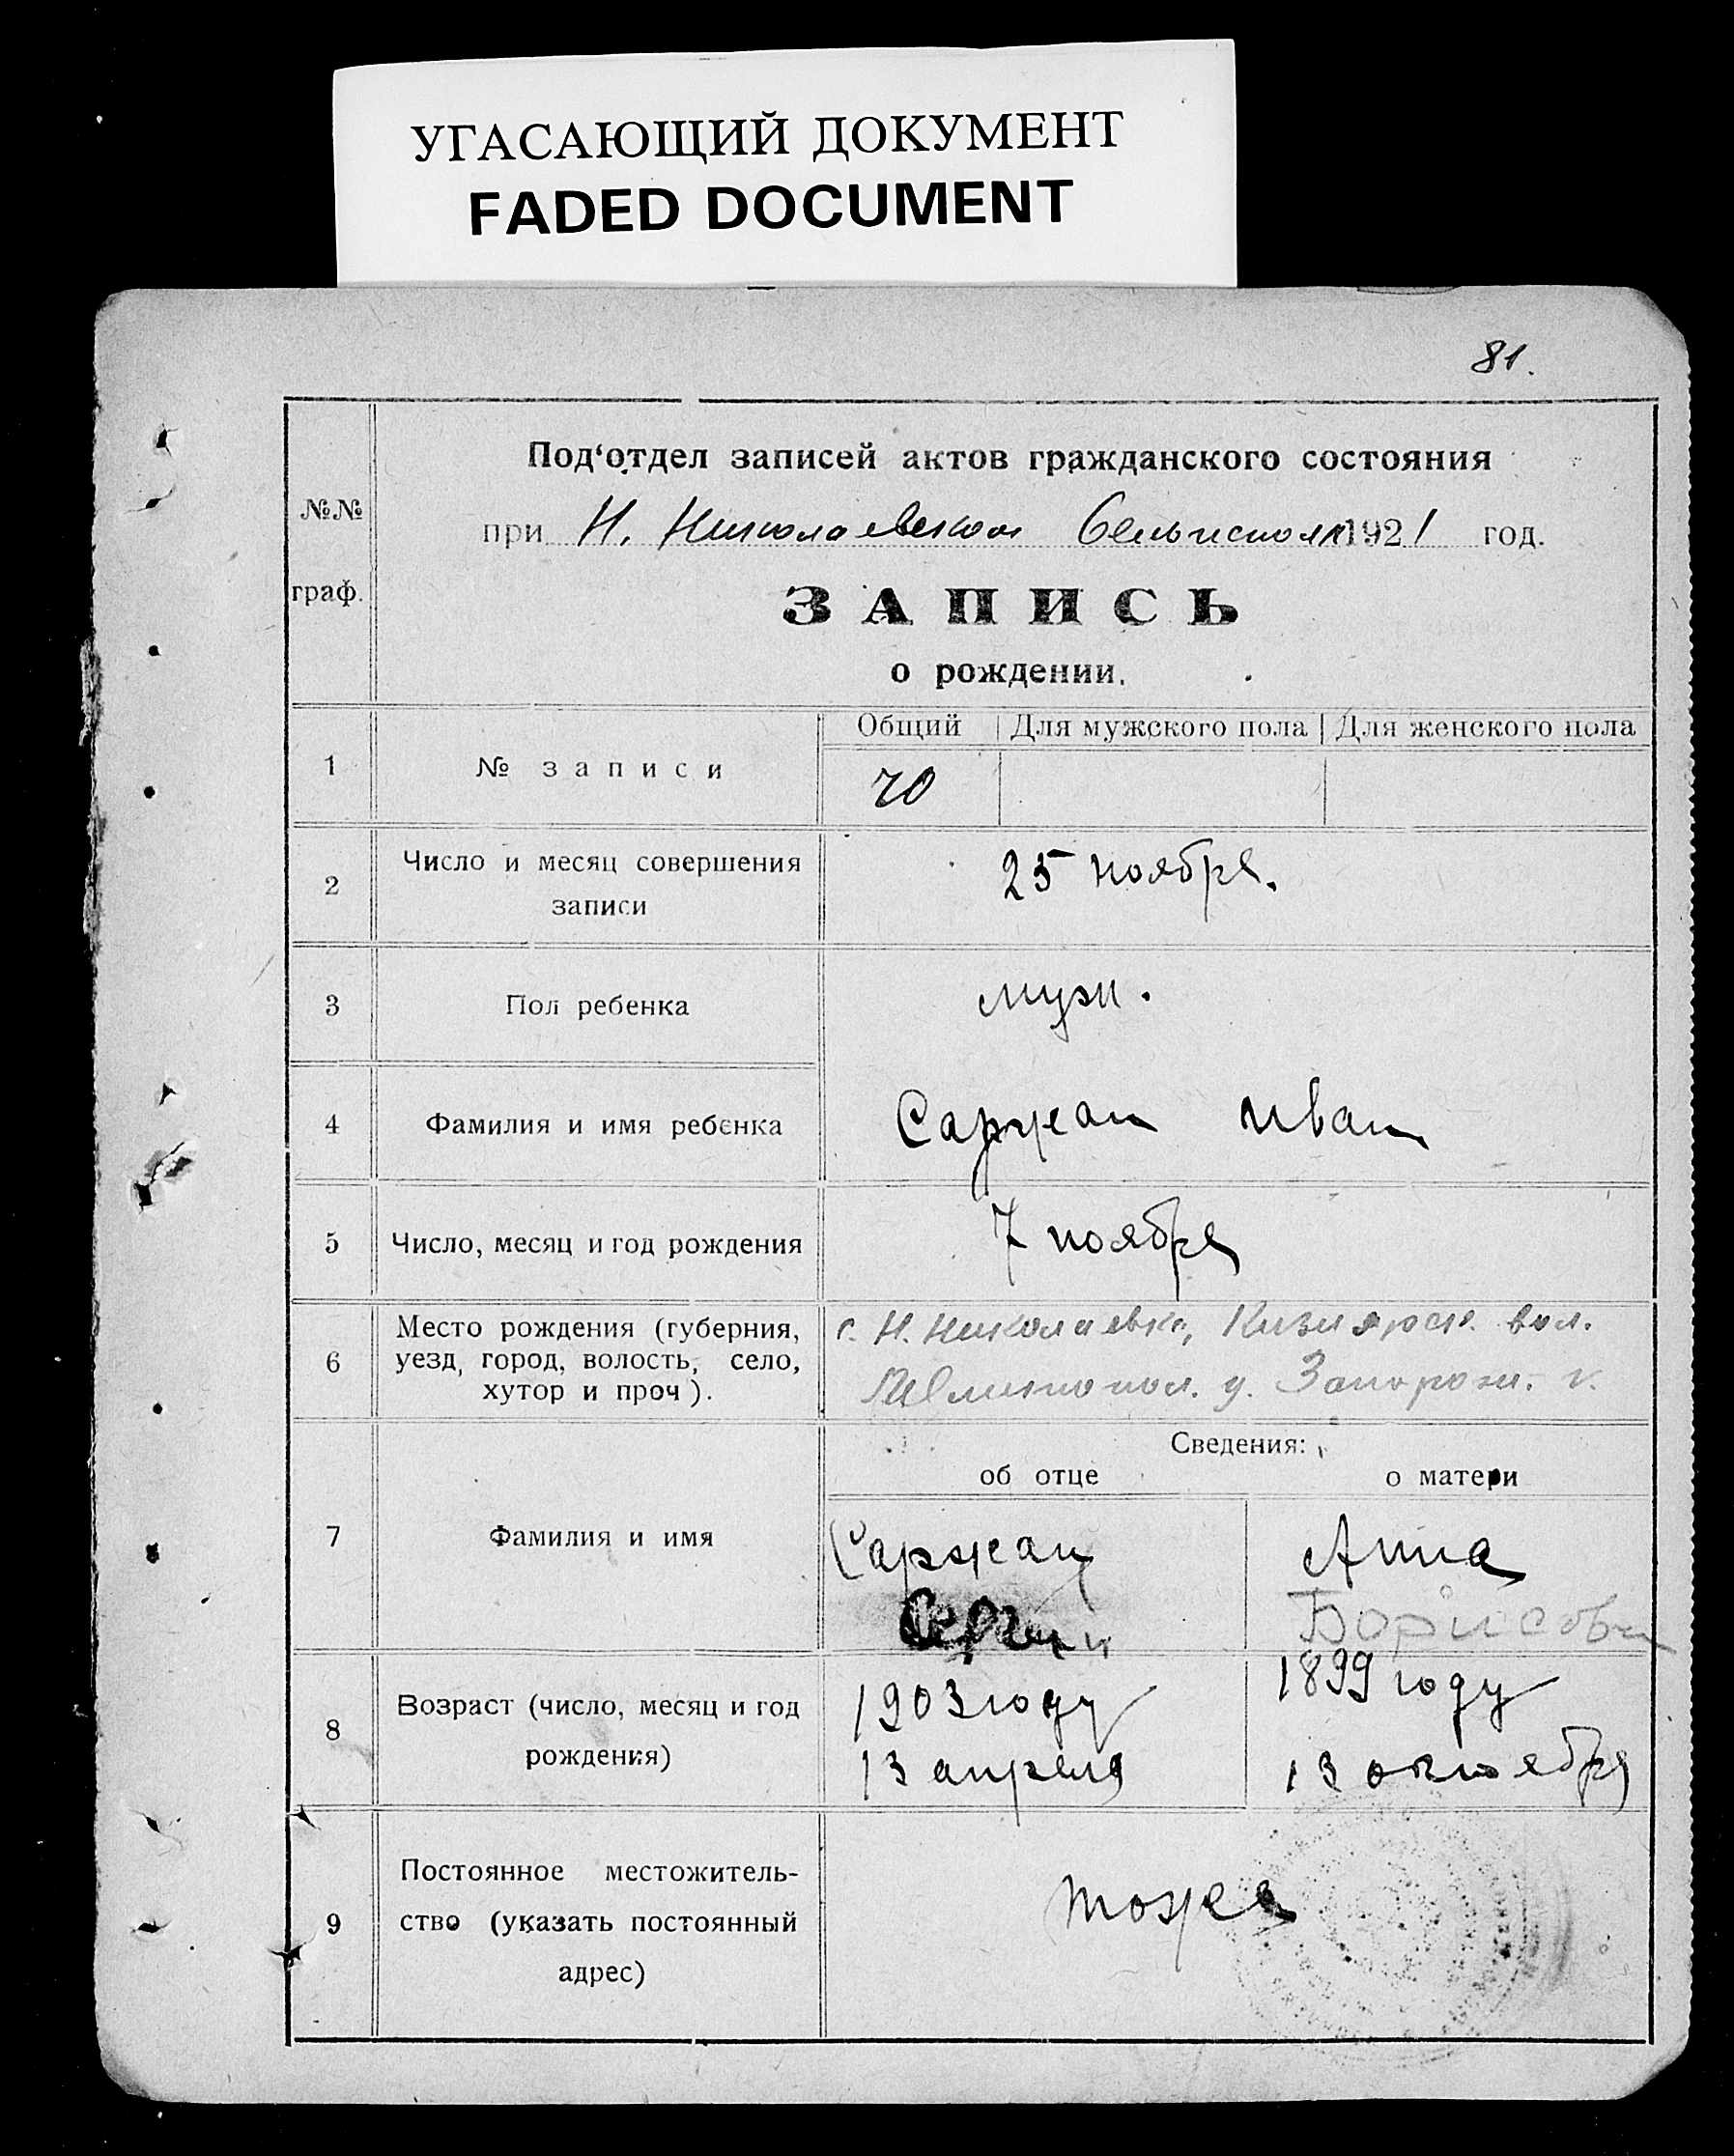 УГАСАЮЩИЙ ДОКУМЕНТ
FADED DOCUMENT
81.
№№
граф.
Под‘отдел записей актов гражданского состояния
при Н. Николаевском Сельисполк 1921 год.
ЗАПИСЬ
о рождении.
1 № записи
Общий Для мужского пола Для женского пола
70
2 Число и месяц совершения
записи
25 ноября.
3 Пол ребенка
муж.
4 Фамилия и имя ребенка
Саржан Иван
5 Число, месяц и год рождения
7 ноября
6 Место рождения (губерния,
уезд, город, волость, село,
хутор и проч).
с. Н. Николаевка, Кизиярск. вол.
Мелитопол. у. Запорож. г.
Сведения:
об отце о матери
7 Фамилия и имя
Саржан
Сергий
Анна
Борисовн
8 Возраст (число, месяц и год
рождения)
1903 году
13 апреля
1899 году
13 октября
9 Постоянное местожитель-
ство (указать постоянный
адрес)
тоже